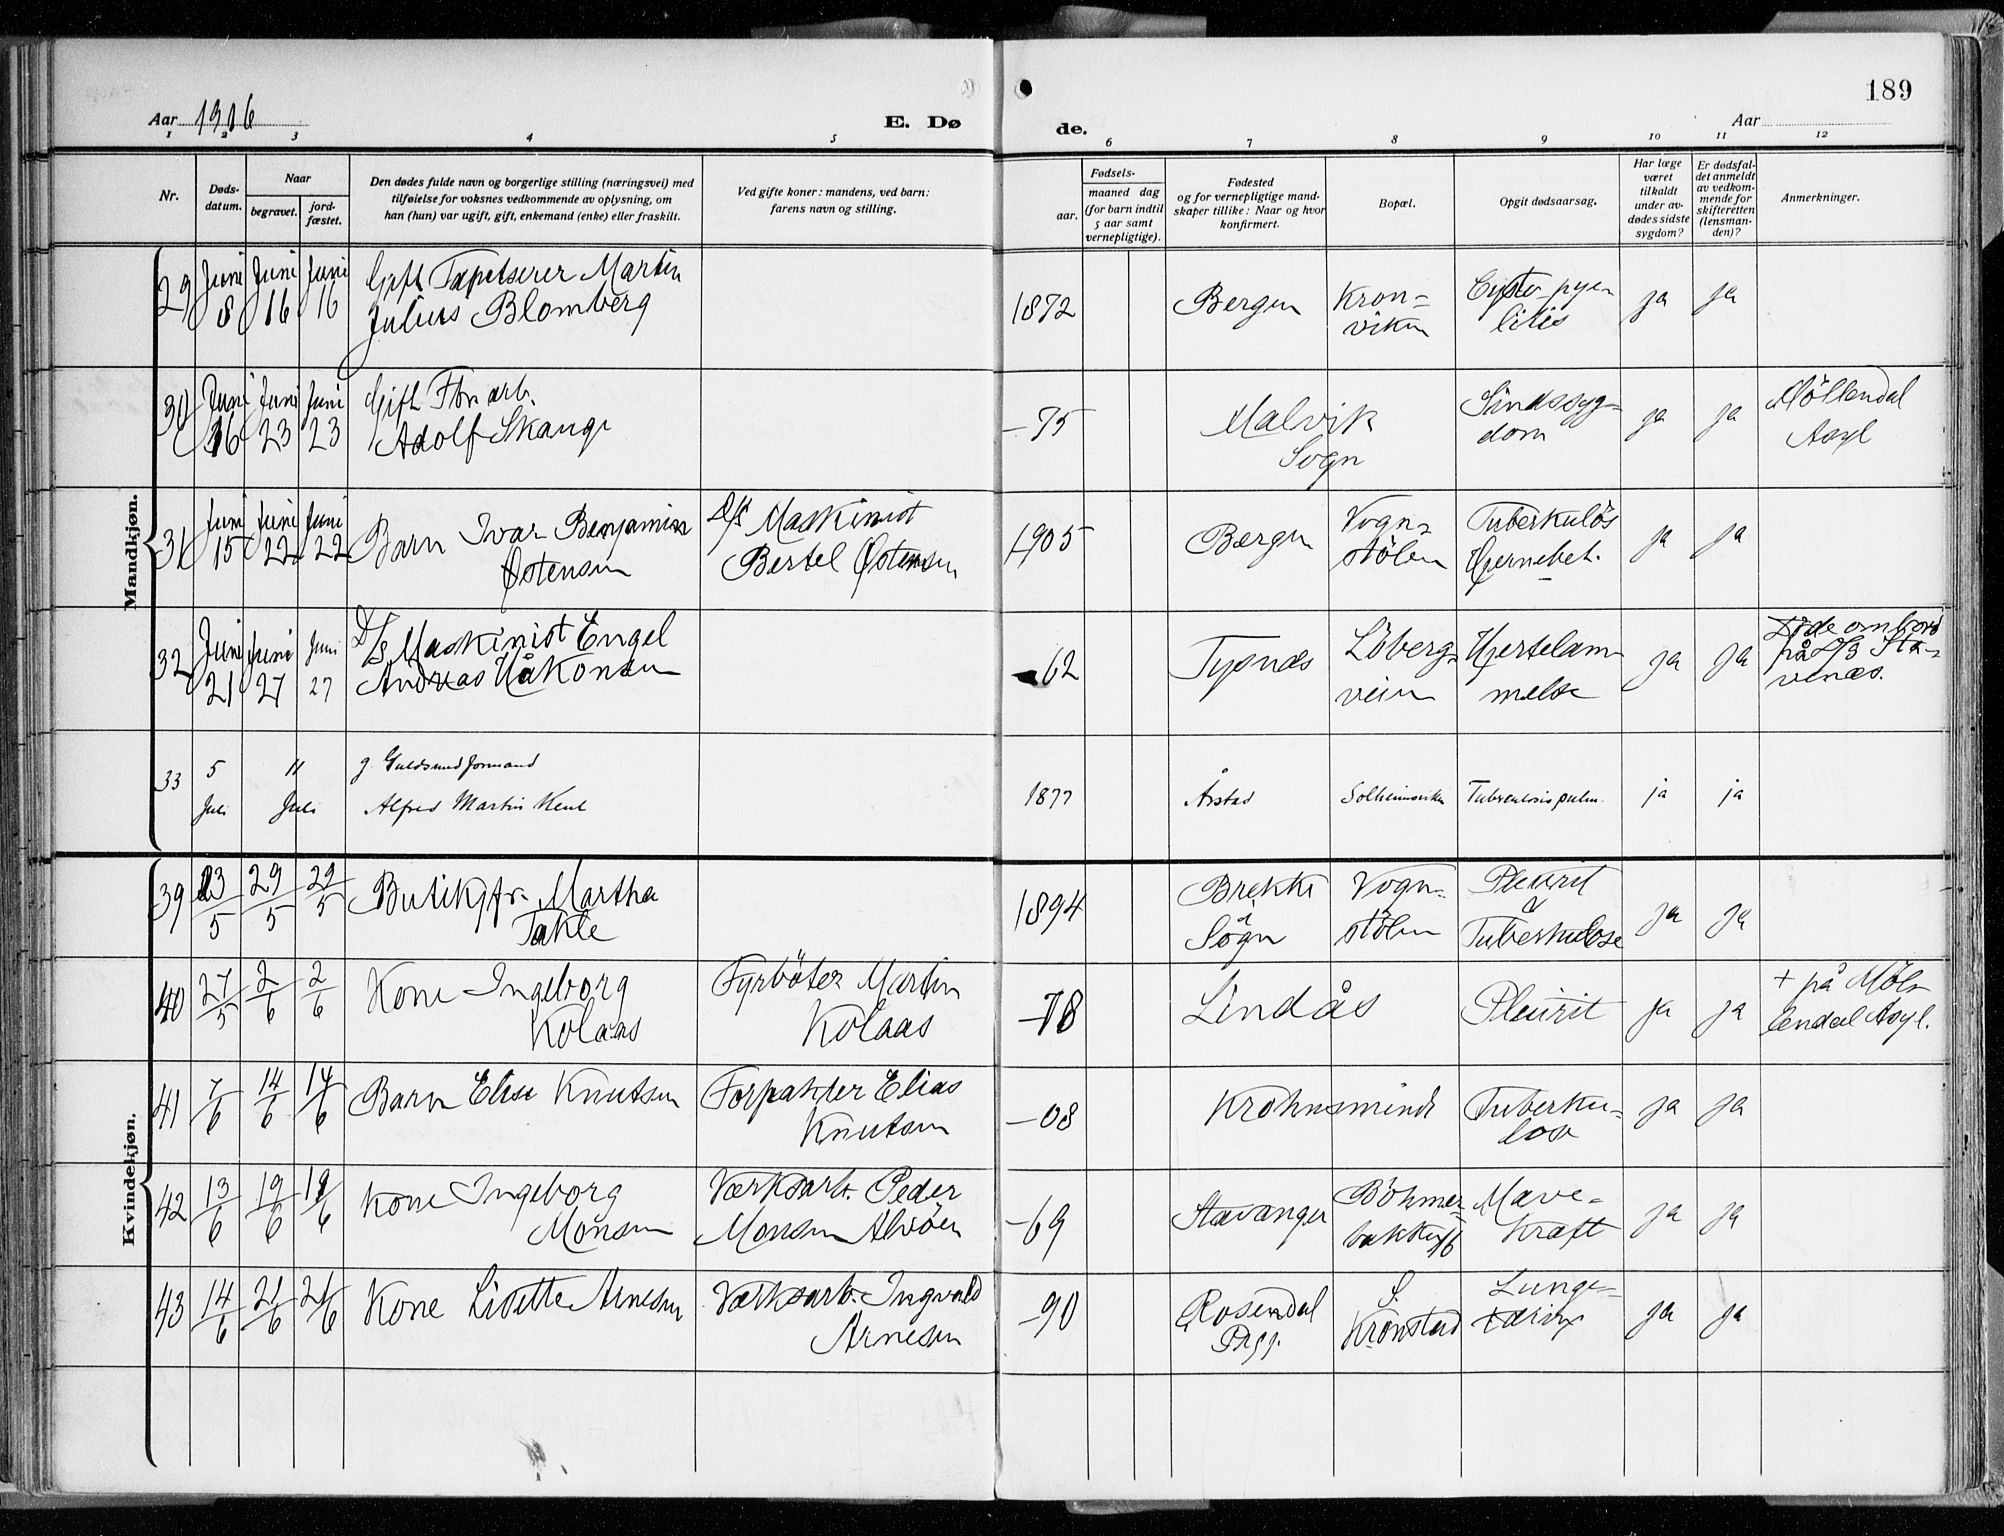 189
Aar 1916
E. Dø
de.
Aar
1 2 3 4 5 6 7 8 9 10 11 12
Nr.
Døds-
datum.
Naar
begravet.
jord-
fæstet.
Den dødes fulde navn og borgerlige stilling (næringsvei) med
tilføielse for voksnes vedkommende av oplysning, om
han (hun) var ugift, gift, enkemand (enke) eller fraskilt.
Ved gifte koner: mandens, ved barn:
farens navn og stilling.
Fødsels-
aar.
maaned dag
(for barn indtil
5 aar samt
vernepligtige).
Fødested
og for vernepligtige mand-
skaper tillike: Naar og hvor
konfirmert.
Bopæl.
Opgit dødsaarsag.
Har læge
været
tilkaldt
under av-
dødes sidste
sygdom?
Er dødsfal-
det anmeldt
av vedkom-
mende for
skifteretten
(lensman-
den)?
Anmerkninger.
Mandkjøn.
29 Juni Juni Juni Gift Tapetserer Martin
8 16 16 Julius Blomberg
1872 Bergen Kron-
viken
Cysto-pye-
litis
ja ja
30 Juni Juni Juni Gift
16 23 23 Adolf
-75 Malvik
Sogn
Sindssyg-
dom
ja ja Möllendal
Asyl
31 Juni Juni Juni Barn Ivar Benjamin
15 22 22 Østensen
D/s Maskinist
Bertel Østensen
1905 Bergen Vogn-
stölen
Tuberkulös
Hjernebet.
ja ja
32 Juni Juni Juni D/s Maskinist Engel
21 27 27 Andreas Håkonsen
-62 Tysnæs Löbergs
veien
Hjertelam-
melse
ja ja Döde ombord
på D/s Sta-
venæs.
33 5 11 g. Guldsmedformand
Juli Juli Alfred Martin
1877 Årstad Solheimsviken Tuberculosis pulm. ja ja
Kvindekjøn.
39 23/5 29/5 29/5 Butikfr. Martha
Takle
1894 Brekke
i
Sogn
Vogn-
stölen
Pleurit
&
Tuberkulose
ja ja
40 27/5 2/6 2/6 Kone Ingeborg
Kolaas
Fyrböter Martin
Kolaas
-78 Lindås Pleurit ja ja + på Möl-
lendal Asyl.
41 7/6 14/6 14/6 Barn Elise Knutsen Forpakter Elias
Knutsen
-08 Krohnsminde Tuberku-
lose
ja ja
42 13/6 19/6 19/6 Kone Ingeborg
Monsen
Værksarb. Peder
Monsen Alvöen
-69 Stavanger Böhmer-
bakken 16
Mave-
kræft
ja ja
43 14/6 21/6 21/6 Kone Lisette Arnesen Værksarb. Ingvald
Arnesen
-90 Rosendal
Prgj.
S.
Kronstad
Lunge-
tæring
ja ja